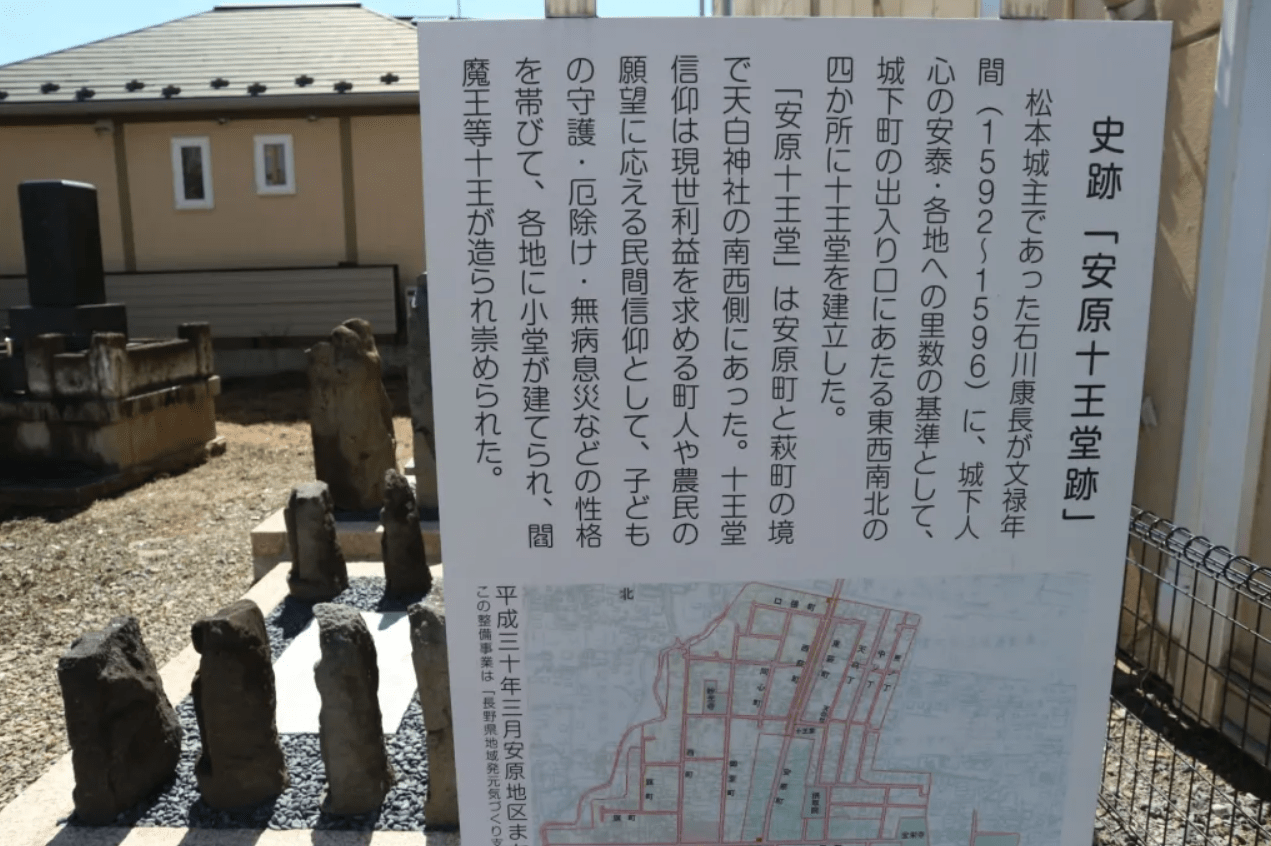 史跡「安原十王堂跡」
松本城主であった石川康長が文禄年
間（1592～1596）に、城下人
心の安泰・各地への里数の基準として、
城下町の出入り口にあたる東西南北の
四か所に十王堂を建立した。
「安原十王堂」は安原町と萩町の境
で天白神社の南西側にあった。十王堂
信仰は現世利益を求める町人や農民の
願望に応える民間信仰として、子ども
の守護・厄除け・無病息災などの性格
を帯びて、各地に小堂が建てられ、閻
魔王等十王が造られ崇められた。
平成三十年三月安原地区ま
この整備事業は「長野県地域発元気づくり支
北
同心町
十王堂
安原町